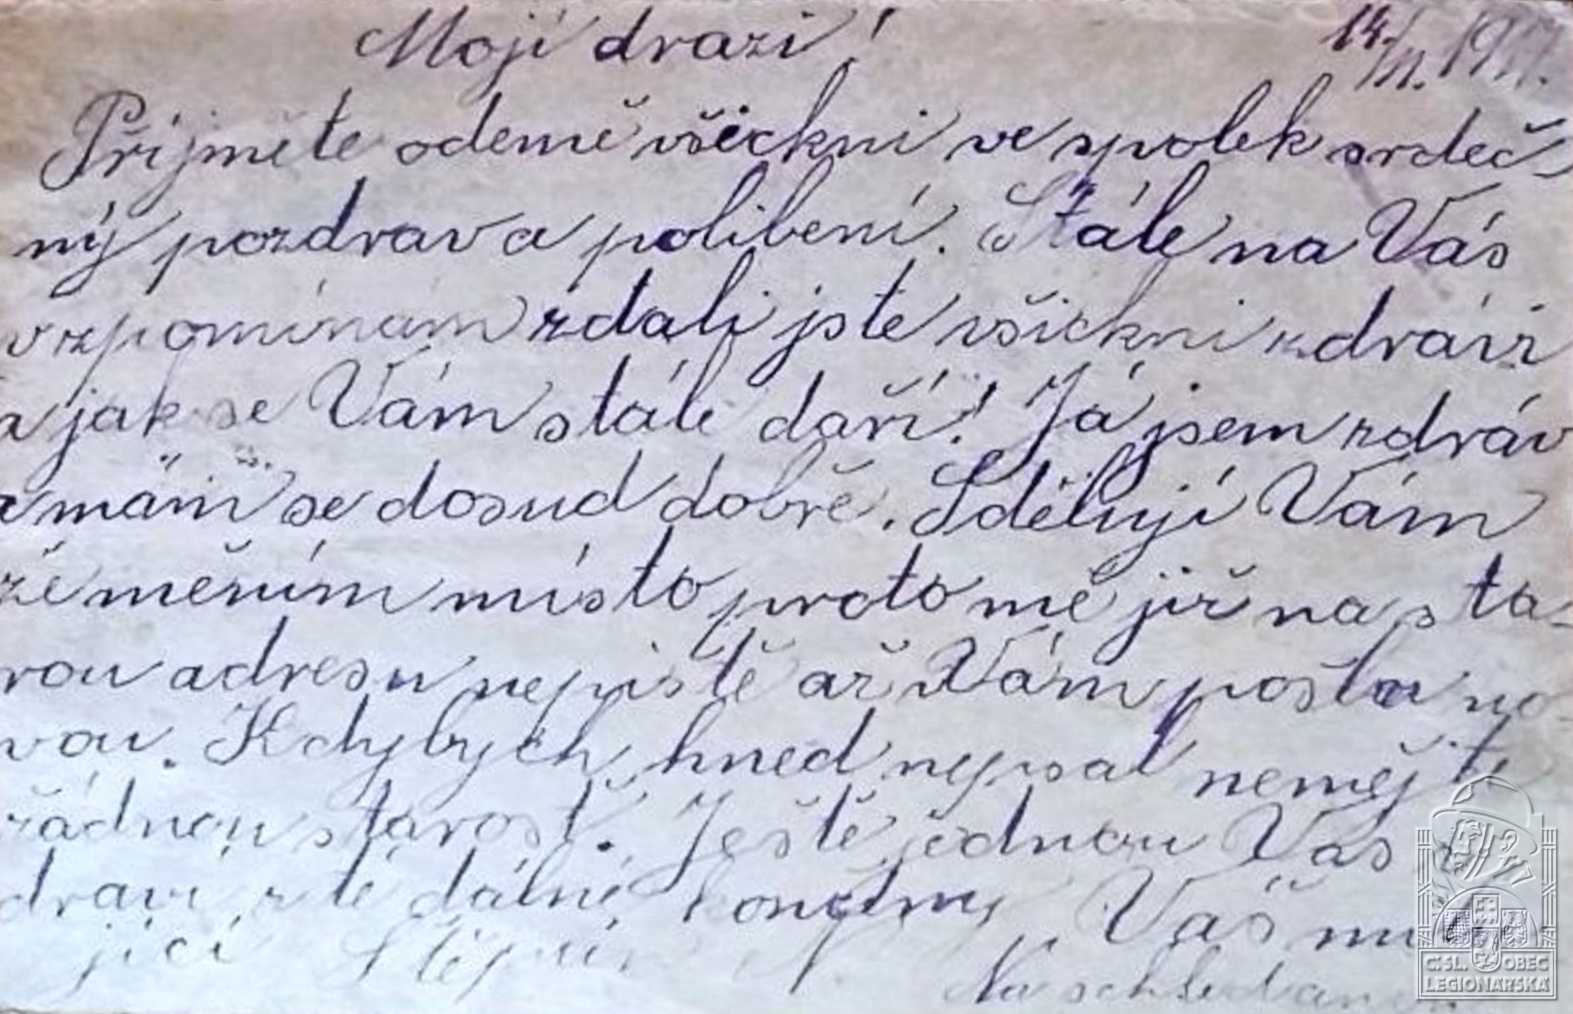 Moji drazí! 14./II. 1917.
Přijměte odemě všickni ve spolek srdeč
ný pozdrav a políbení. Stále na Vás
vzpomínám zdali jste všickni zdrávi
a jak se Vám stále daří! Já jsem zdráv
a mám se dosud dobře. Sděluji Vám
že měním místo proto mě již na sta-
rou adresu nepiště až Vám pošlu no-
vou. Kdybych hned nepsal nemějte
žádnou starost. Ještě jednou Vás z
draví z té dálné končiny Váš mi
jící Štěpán
Na schledanou
Č.SL. OBEC
LEGIONÁŘSKÁ